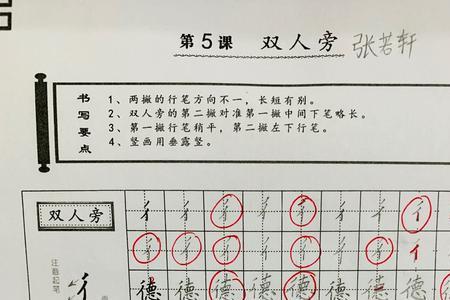 第5课 双人旁 张若轩
书写要点
1、两撇的行笔方向不一，长短有别。
2、双人旁的第二撇对准第一撇中间下笔略长。
3、第一撇行笔稍平，第二撇左下行笔。
4、竖画用垂露竖。
双人旁 彳 彳 彳 彳 彳 彳 彳 彳
彳 彳 彳 彳 彳 彳 彳 彳
注意起笔 彳 德 德 德 德 德 德 德 德